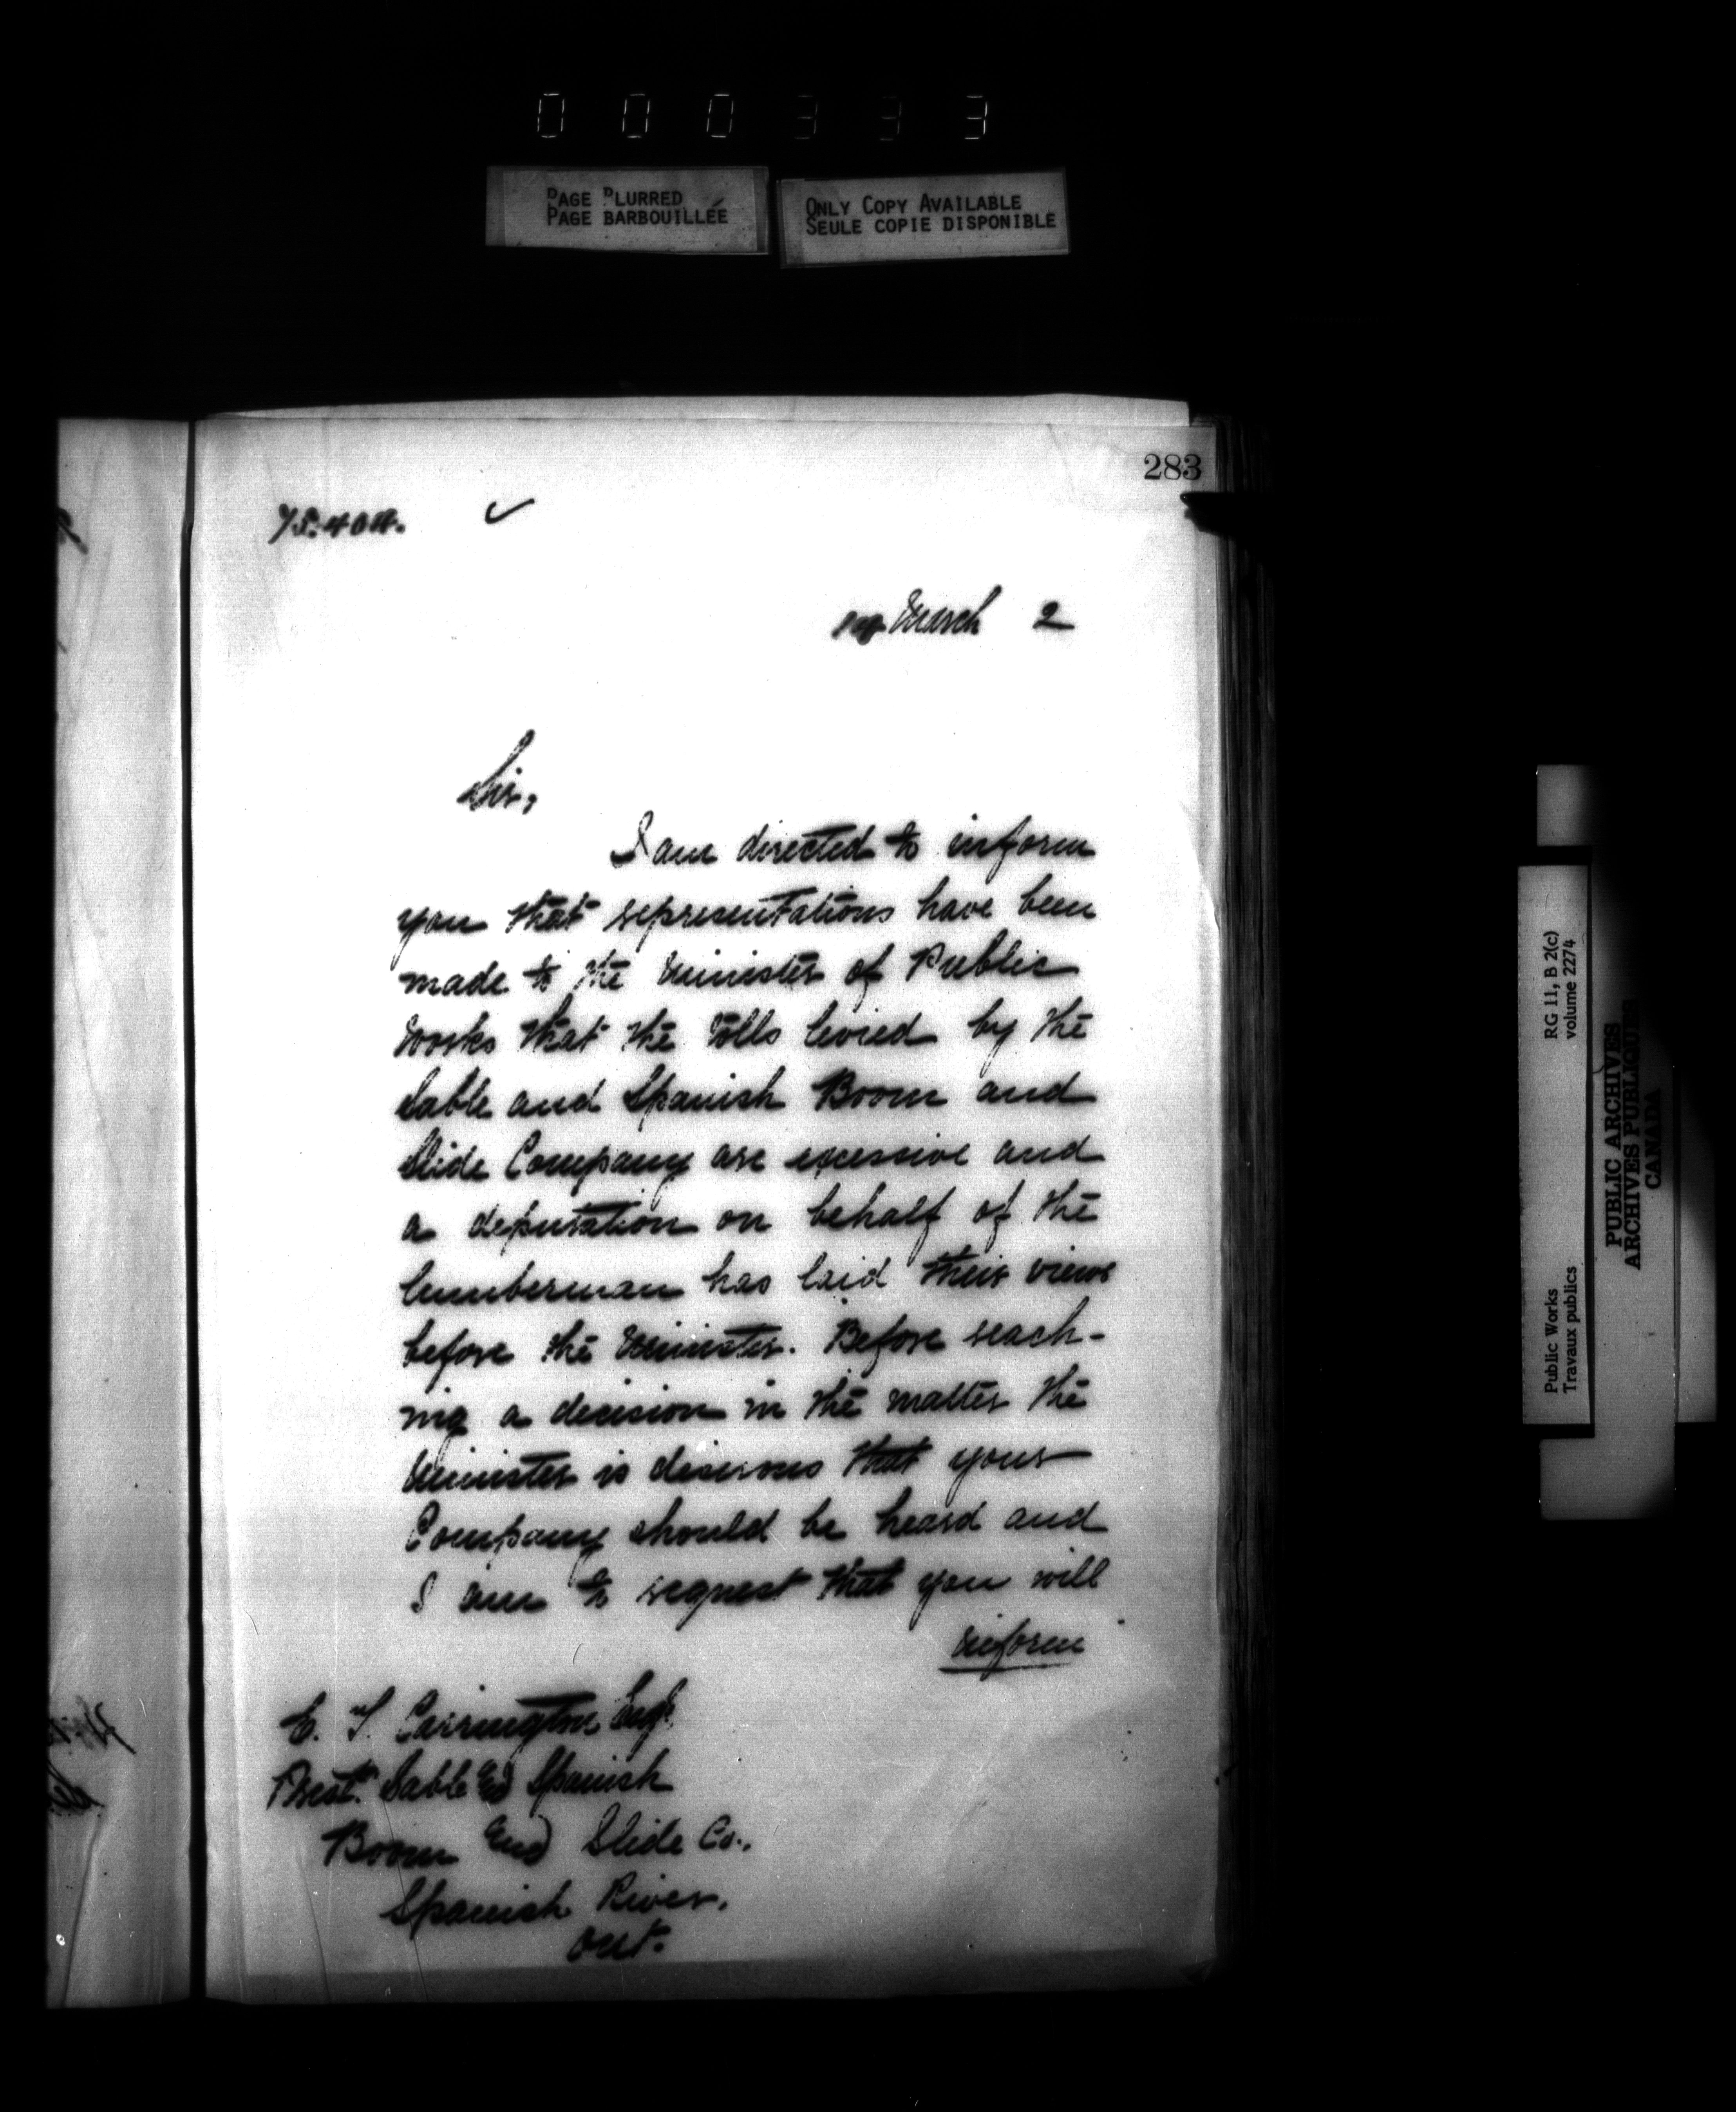 000333
PAGE BLURRED
PAGE BARBOUILLÉE
ONLY COPY AVAILABLE
SEULE COPIE DISPONIBLE
283
75.404.
March 2
Sir,
I am directed to inform
you that representations have been
made to the Minister of Public
Works that the tolls levied by the
Sable and Spanish Boom and
Slide Company are excessive and
a deputation on behalf of the
lumberman has laid their views
before the Minister. Before reach-
ing a decision in the matter the
Minister is desirous that your
Company should be heard and
I am to request that you will
inform
E. T. Carrington Esq.
Prest. Sable and Spanish
Boom and Slide Co.,
Spanish River,
Ont.
Public Works
Travaux publics
RG 11, B 2(c)
volume 2274
PUBLIC ARCHIVES
ARCHIVES PUBLIQUES
CANADA